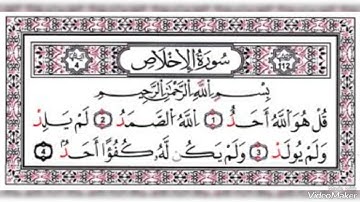 سُورَةُ الْإِخْلَاصِ
بِسْمِ اللَّهِ الرَّحْمَٰنِ الرَّحِيمِ
قُلْ هُوَ اللَّهُ أَحَدٌ 1 اللَّهُ الصَّمَدُ 2 لَمْ يَلِدْ
وَلَمْ يُولَدْ 3 وَلَمْ يَكُن لَّهُ كُفُوًا أَحَدٌ 4
VideoMaker